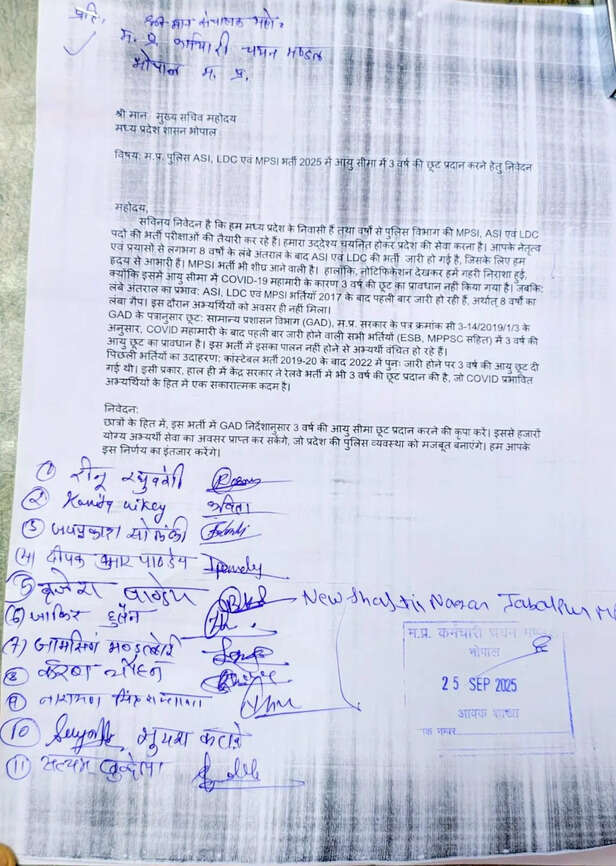 प्रति,
श्रीमान संचालक महो.
म. प्र. कर्मचारी चयन मण्डल
भोपाल म. प्र.
श्री मान मुख्य सचिव महोदय
मध्य प्रदेश शासन भोपाल
विषय: म.प्र. पुलिस ASI, LDC एवं MPSI भर्ती 2025 में आयु सीमा में 3 वर्ष की छूट प्रदान करने हेतु निवेदन
महोदय,
सविनय निवेदन है कि हम मध्य प्रदेश के निवासी हैं तथा वर्षों से पुलिस विभाग की MPSI, ASI एवं LDC
पदों की भर्ती परीक्षाओं की तैयारी कर रहे हैं। हमारा उद्देश्य चयनित होकर प्रदेश की सेवा करना है। आपके नेतृत्व
एवं प्रयासों से लगभग 8 वर्षों के लंबे अंतराल के बाद ASI एवं LDC की भर्ती जारी हो गई है, जिसके लिए हम
हृदय से आभारी हैं। MPSI भर्ती भी शीघ्र आने वाली है। हालाँकि, नोटिफिकेशन देखकर हमें गहरी निराशा हुई,
क्योंकि इसमें आयु सीमा में COVID-19 महामारी के कारण 3 वर्ष की छूट का प्रावधान नहीं किया गया है। जबकि:
लंबे अंतराल का प्रभाव: ASI, LDC एवं MPSI भर्तियाँ 2017 के बाद पहली बार जारी हो रही हैं, अर्थात् 8 वर्षों का
लंबा गैप। इस दौरान अभ्यर्थियों को अवसर ही नहीं मिला।
GAD के पत्रानुसार छूट: सामान्य प्रशासन विभाग (GAD), म.प्र. सरकार के पत्र क्रमांक सी 3-14/2019/1/3 के
अनुसार, COVID महामारी के बाद पहली बार जारी होने वाली सभी भर्तियों (ESB, MPPSC सहित) में 3 वर्ष की
आयु छूट का प्रावधान है। इस भर्ती में इसका पालन नहीं होने से अभ्यर्थी वंचित हो रहे हैं।
पिछली भर्तियों का उदाहरण: कांस्टेबल भर्ती 2019-20 के बाद 2022 में पुनः जारी होने पर 3 वर्ष की आयु छूट दी
गई थी। इसी प्रकार, हाल ही में केंद्र सरकार ने रेलवे भर्ती में भी 3 वर्ष की छूट प्रदान की है, जो COVID प्रभावित
अभ्यर्थियों के हित में एक सकारात्मक कदम है।
निवेदन:
छात्रों के हित में, इस भर्ती में GAD निर्देशानुसार 3 वर्ष की आयु सीमा छूट प्रदान करने की कृपा करें। इससे हजारों
योग्य अभ्यर्थी सेवा का अवसर प्राप्त कर सकेंगे, जो प्रदेश की पुलिस व्यवस्था को मजबूत बनाएंगे। हम आपके
इस निर्णय का इंतजार करेंगे।
① रीनू रघुवंशी
② कविता
③ जयप्रकाश सोलंकी
(4) दीपक कुमार पाण्डेय
⑤ बृजेश पाण्डेय New Shakti Nagar Jabalpur
⑥ जाकिर हुसैन
(7)
⑧ करण चौहान
⑨
⑩
⑪ सत्यम बुन्देला
म.प्र. कर्मचारी चयन मण्डल
भोपाल
25 SEP 2025
आवक शाखा